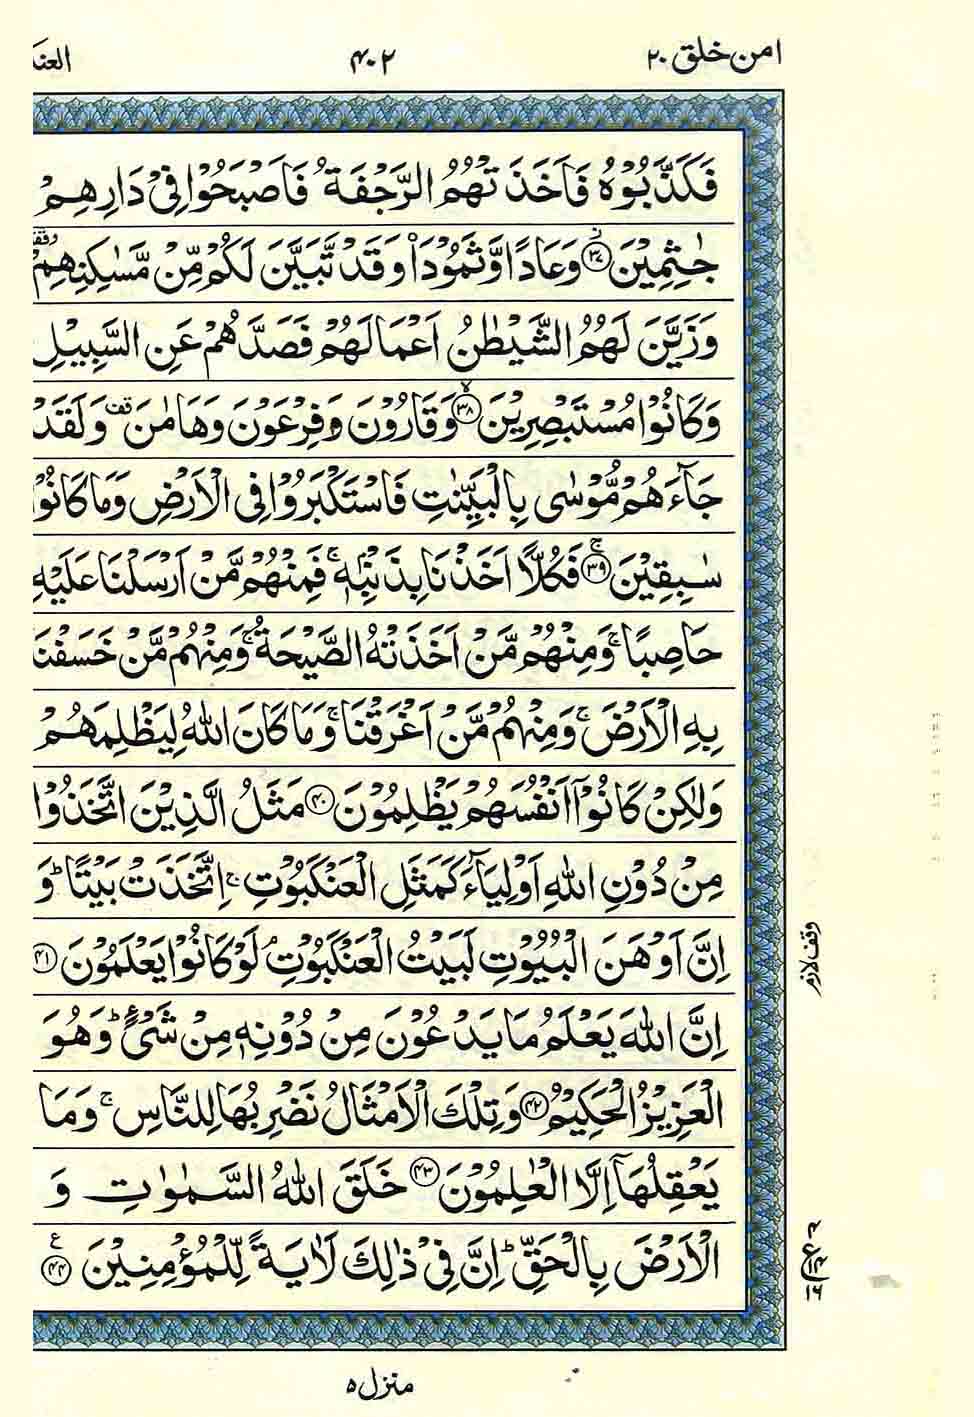 امن خلق ۲۰
۴۰۲
العنك
فَكَذَّبُوْهُ فَاَخَذَتْهُمُ الرَّجْفَةُ فَاَصْبَحُوْا فِیْ دَارِهِمْ
جٰثِمِیْنَ ۳۷ وَعَادًا وَّثَمُوْدَا۟ وَقَدْ تَّبَیَّنَ لَكُمْ مِّنْ مَّسٰكِنِهِمْ وقفة
وَزَیَّنَ لَهُمُ الشَّیْطٰنُ اَعْمَالَهُمْ فَصَدَّهُمْ عَنِ السَّبِیْلِ
وَكَانُوْا مُسْتَبْصِرِیْنَ ۳۸ وَقَارُوْنَ وَفِرْعَوْنَ وَهَامٰنَ قف وَلَقَدْ
جَآءَهُمْ مُّوْسٰی بِالْبَیِّنٰتِ فَاسْتَكْبَرُوْا فِی الْاَرْضِ وَمَا كَانُوْا
سٰبِقِیْنَ ۳۹ فَكُلًّا اَخَذْنَا بِذَنْۢبِهٖ ۚ فَمِنْهُمْ مَّنْ اَرْسَلْنَا عَلَیْهِ
حَاصِبًا ۚ وَمِنْهُمْ مَّنْ اَخَذَتْهُ الصَّیْحَةُ ۚ وَمِنْهُمْ مَّنْ خَسَفْنَا
بِهِ الْاَرْضَ ۚ وَمِنْهُمْ مَّنْ اَغْرَقْنَا ۚ وَمَا كَانَ اللّٰهُ لِیَظْلِمَهُمْ
وَلٰكِنْ كَانُوْۤا اَنْفُسَهُمْ یَظْلِمُوْنَ ۴۰ مَثَلُ الَّذِیْنَ اتَّخَذُوْا
مِنْ دُوْنِ اللّٰهِ اَوْلِیَآءَ كَمَثَلِ الْعَنْكَبُوْتِ ۚ اِتَّخَذَتْ بَیْتًا ؕ وَ
اِنَّ اَوْهَنَ الْبُیُوْتِ لَبَیْتُ الْعَنْكَبُوْتِ ۘ لَوْ كَانُوْا یَعْلَمُوْنَ ۴۱
وقف لازم
اِنَّ اللّٰهَ یَعْلَمُ مَا یَدْعُوْنَ مِنْ دُوْنِهٖ مِنْ شَیْءٍ ؕ وَهُوَ
الْعَزِیْزُ الْحَكِیْمُ ۴۲ وَتِلْكَ الْاَمْثَالُ نَضْرِبُهَا لِلنَّاسِ ۚ وَمَا
یَعْقِلُهَاۤ اِلَّا الْعٰلِمُوْنَ ۴۳ خَلَقَ اللّٰهُ السَّمٰوٰتِ وَ
الْاَرْضَ بِالْحَقِّ ؕ اِنَّ فِیْ ذٰلِكَ لَاٰیَةً لِّلْمُؤْمِنِیْنَ ۴۴ ع
۴
ع
۱۴
۱۶
منزل ۵